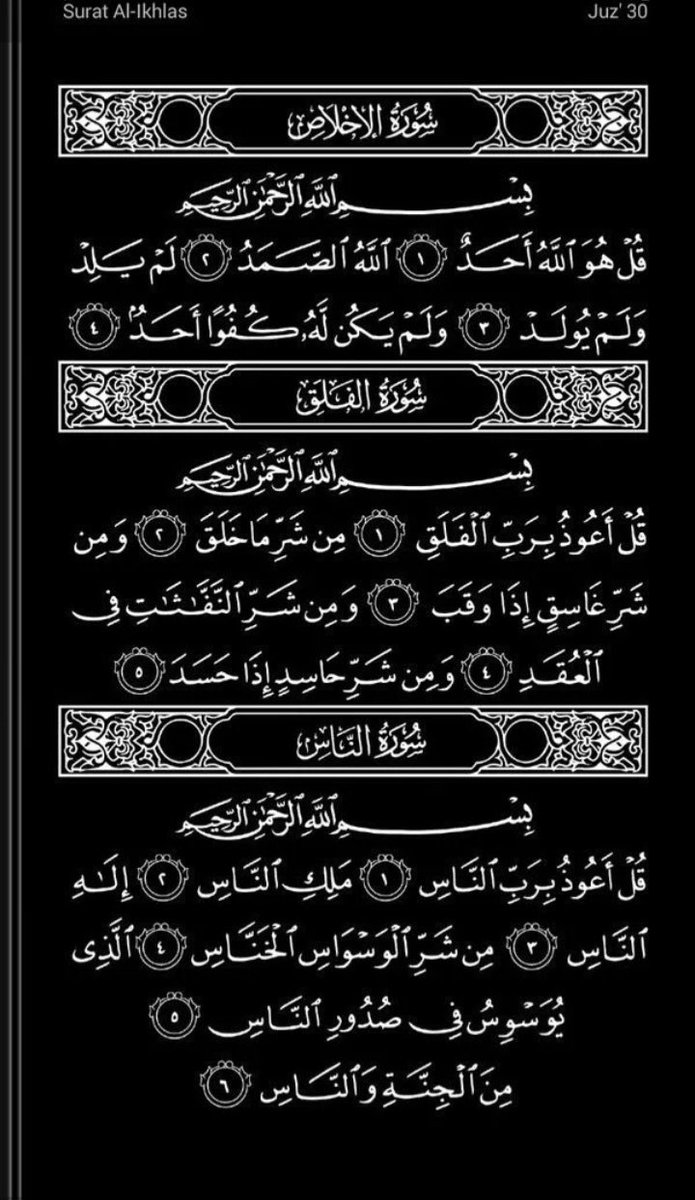 Surat Al-Ikhlas
Juz' 30
سُورَةُ الإِخْلَاصِ
بِسْمِ ٱللَّهِ ٱلرَّحْمَٰنِ ٱلرَّحِيمِ
قُلْ هُوَ ٱللَّهُ أَحَدٌ ١ ٱللَّهُ ٱلصَّمَدُ ٢ لَمْ يَلِدْ
وَلَمْ يُولَدْ ٣ وَلَمْ يَكُن لَّهُۥ كُفُوًا أَحَدٌۢ ٤
سُورَةُ الفَلَقِ
بِسْمِ ٱللَّهِ ٱلرَّحْمَٰنِ ٱلرَّحِيمِ
قُلْ أَعُوذُ بِرَبِّ ٱلْفَلَقِ ١ مِن شَرِّ مَا خَلَقَ ٢ وَمِن
شَرِّ غَاسِقٍ إِذَا وَقَبَ ٣ وَمِن شَرِّ ٱلنَّفَّٰثَٰتِ فِى
ٱلْعُقَدِ ٤ وَمِن شَرِّ حَاسِدٍ إِذَا حَسَدَ ٥
سُورَةُ النَّاسِ
بِسْمِ ٱللَّهِ ٱلرَّحْمَٰنِ ٱلرَّحِيمِ
قُلْ أَعُوذُ بِرَبِّ ٱلنَّاسِ ١ مَلِكِ ٱلنَّاسِ ٢ إِلَٰهِ
ٱلنَّاسِ ٣ مِن شَرِّ ٱلْوَسْوَاسِ ٱلْخَنَّاسِ ٤ ٱلَّذِى
يُوَسْوِسُ فِى صُدُورِ ٱلنَّاسِ ٥
مِنَ ٱلْجِنَّةِ وَٱلنَّاسِ ٦